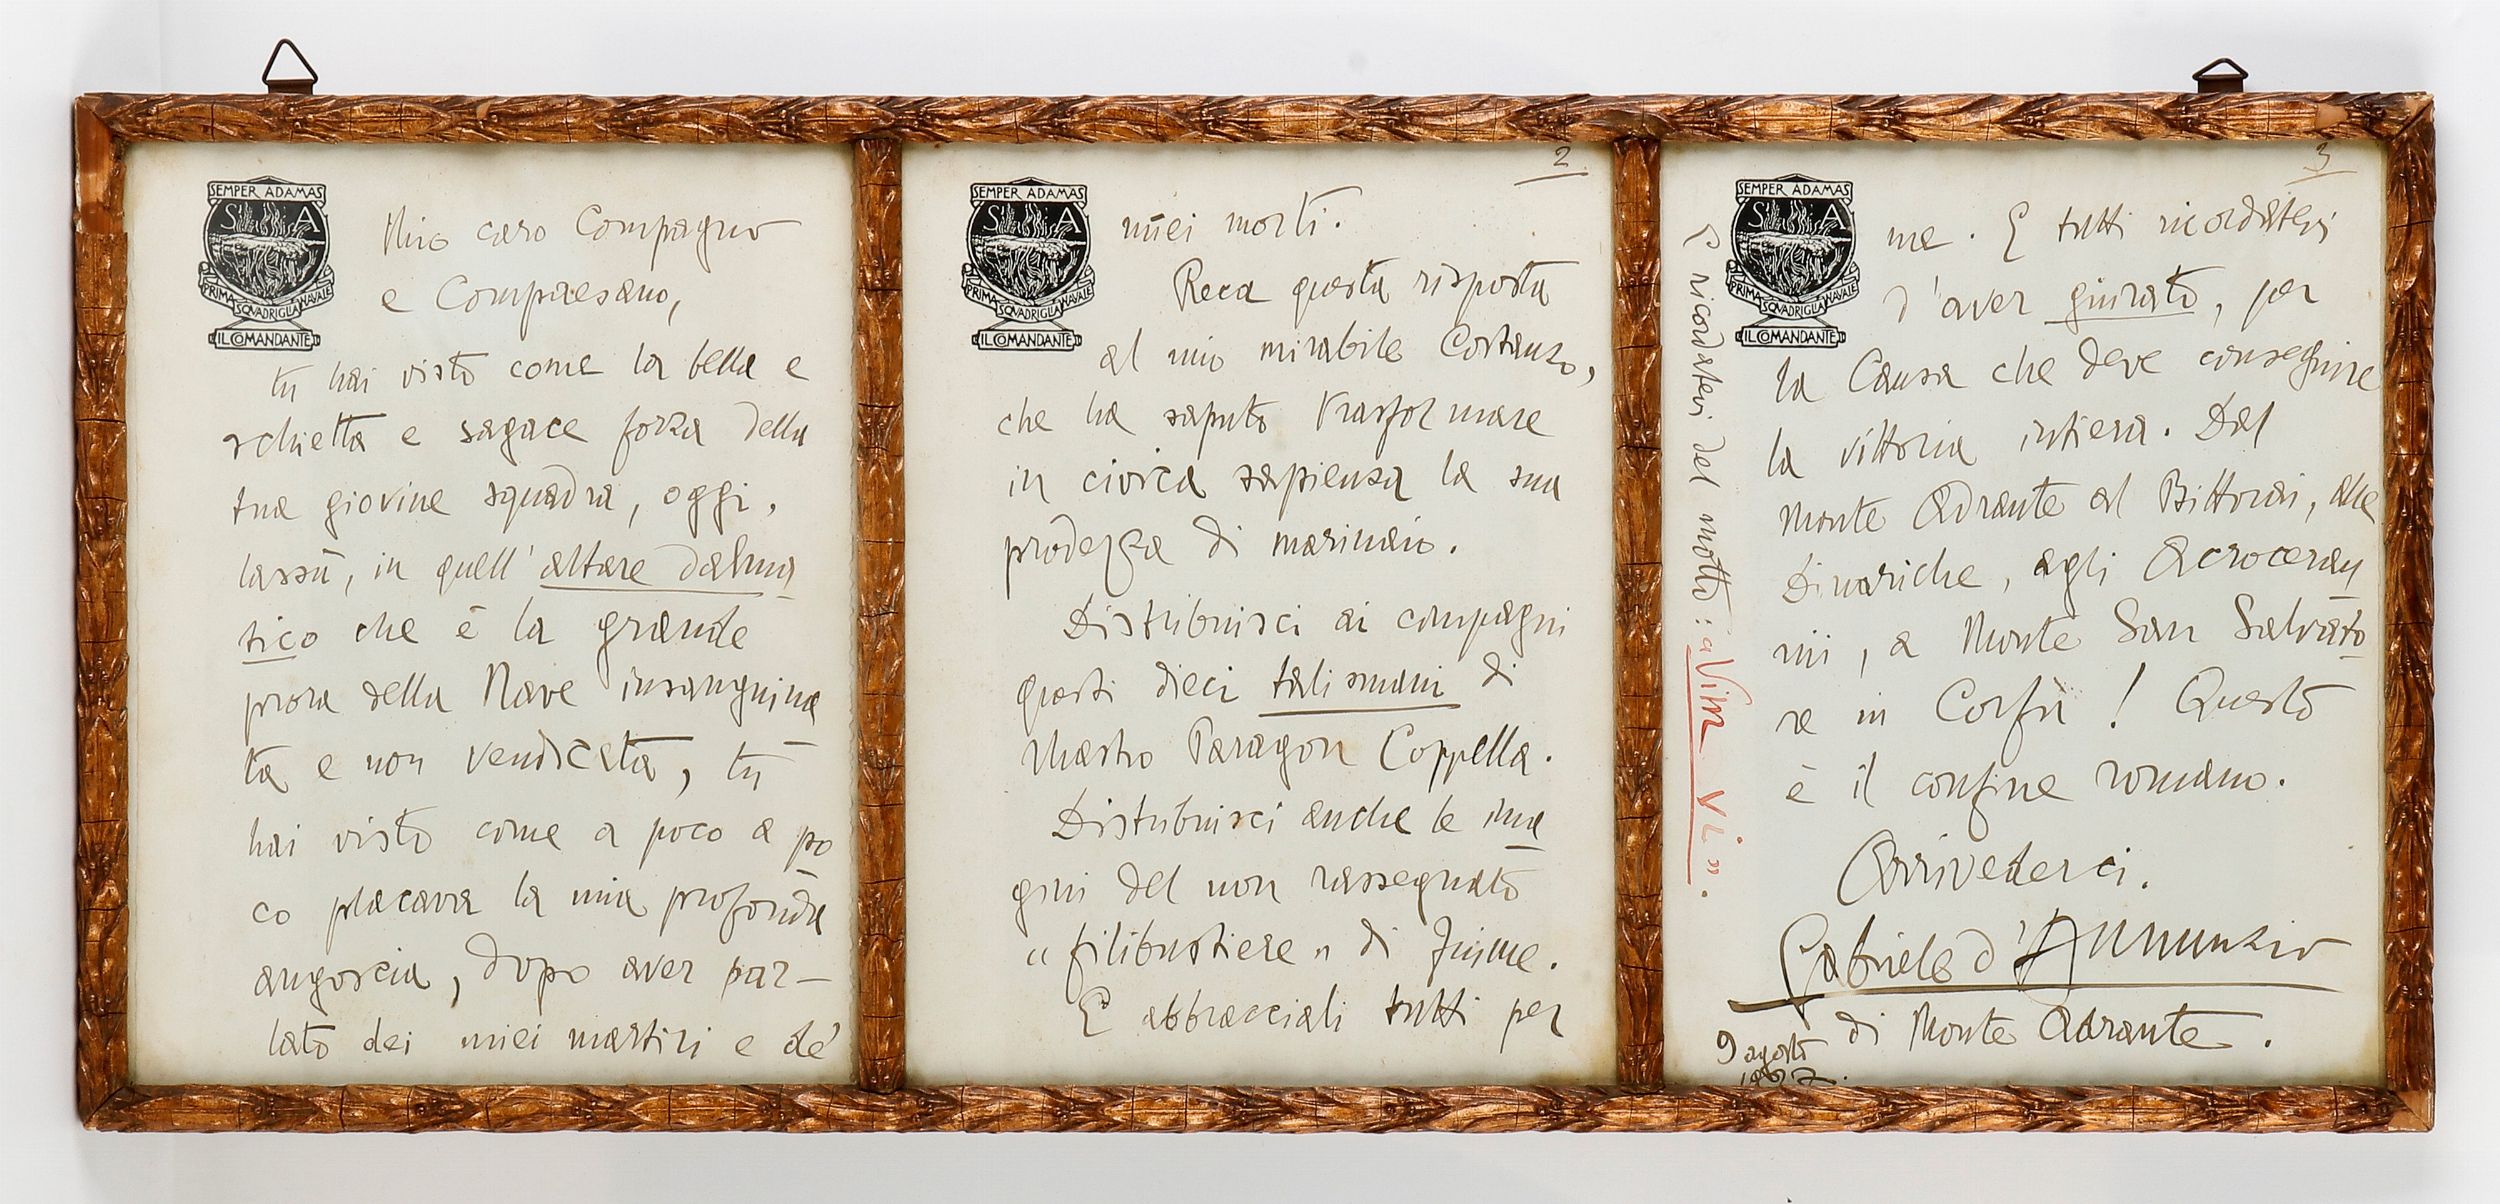 SEMPER ADAMAS
S A
PRIMA SQVADRIGLIA NAVALE
IL COMANDANTE
Mio caro Compagno
e Compaesano,
tu hai visto come la bella e
schietta e sagace forza della
tua giovine squadra, oggi,
lassù, in quell'altare dalma
tico che è la grande
prora della Nave insanguina
ta e non vendicata, tu
hai visto come a poco a po
co placava la mia profonda
angoscia, dopo aver par-
lato dei miei martiri e de'
2
SEMPER ADAMAS
S A
PRIMA SQVADRIGLIA NAVALE
IL COMANDANTE
miei morti.
Reca questa risposta
al mio mirabile Costanzo,
che ha saputo trasformare
in civica sapienza la sua
prodezza di marinaio.
Distribuisci ai compagni
questi dieci talismani di
Mastro Paragon Coppella.
Distribuisci anche le ima
gini del non rassegnato
"filibustiere" di Fiume.
E abbracciali tutti per
3
SEMPER ADAMAS
S A
PRIMA SQVADRIGLIA NAVALE
IL COMANDANTE
me. E tutti ricordatevi
d'aver giurato, per
la Causa che deve conseguire
la vittoria intiera. Dal
Monte Adrante al Bittorai, alle
Dinariche, agli Acroceran
nii, a Monte San Salvato
re in Corfù! Questo
è il confine romano.
Arrivederci.
Gabriele d'Annunzio
di Monte Adrante.
9 agosto
1927.
E ricordatevi del motto: "Vim vi".